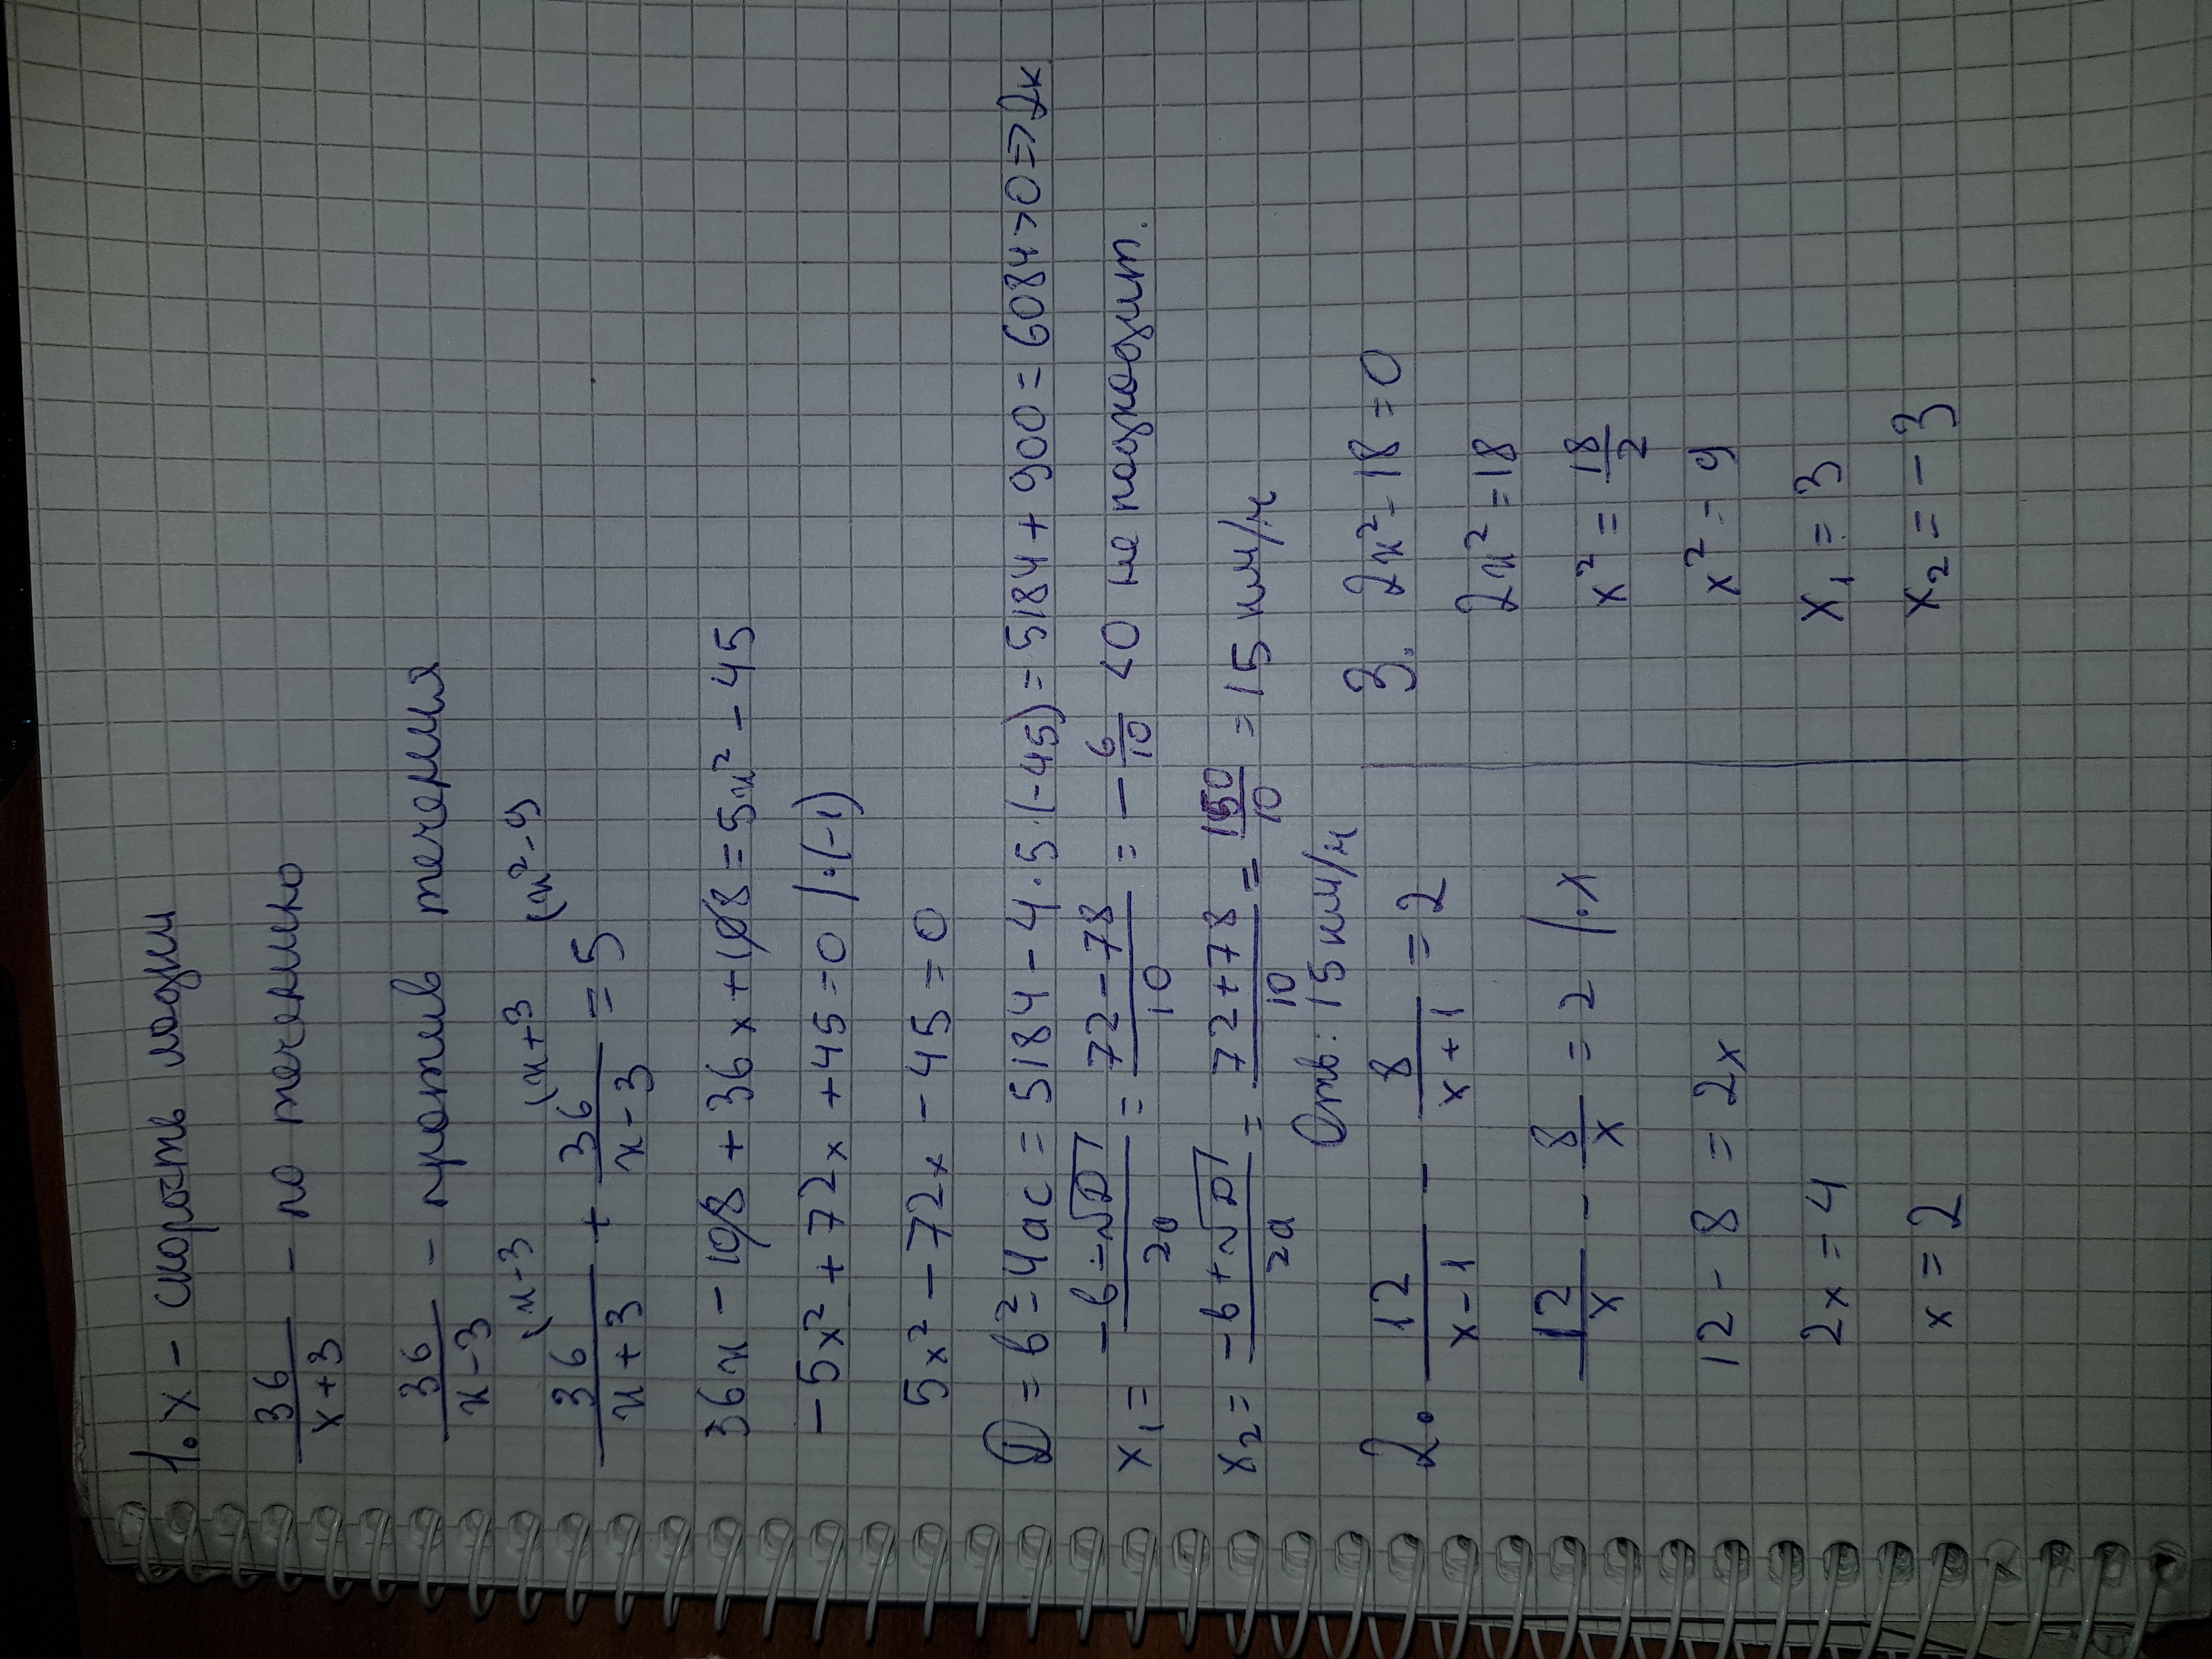 1. x - скорость лодки
36/(x+3) - по течению
36/(x-3) - против течения
36/(x+3) (x-3 + 36/(x-3) (x+3 = 5 (x²-9)
36x - 108 + 36x + 108 = 5x² - 45
-5x² + 72x + 45 = 0 |·(-1)
5x² - 72x - 45 = 0
D = b² - 4ac = 5184 - 4·5·(-45) = 5184 + 900 = 6084 > 0 => 2к
x₁ = (-b-√D)/2a = (72-78)/10 = -6/10 < 0 не подходит.
x₂ = (-b+√D)/2a = (72+78)/10 = 150/10 = 15 км/ч
Отв: 15 км/ч
2. 12/(x-1) - 8/(x+1) = 2
12/x - 8/x = 2 |·x
12 - 8 = 2x
2x = 4
x = 2
3. 2x² - 18 = 0
2x² = 18
x² = 18/2
x² - 9
x₁ = 3
x₂ = -3